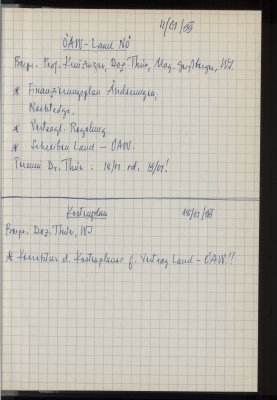 11/01/99
ÖAW - Land NÖ
Bespr. Prof. Kunzinger, Doz. Thür, Mag. WJ
* Finanzierungsplan Änderungen,
Nachträge,
* Vertragl. Regelung
* Schreiben Land - ÖAW.
Termin Dr. Thür: 18/01 od. 19/01!
Kostenplan 18/01/99
Bespr. Doz. Thür, WJ
* Korrektur d. Kostenplanes f. Vertrag Land - ÖAW!!